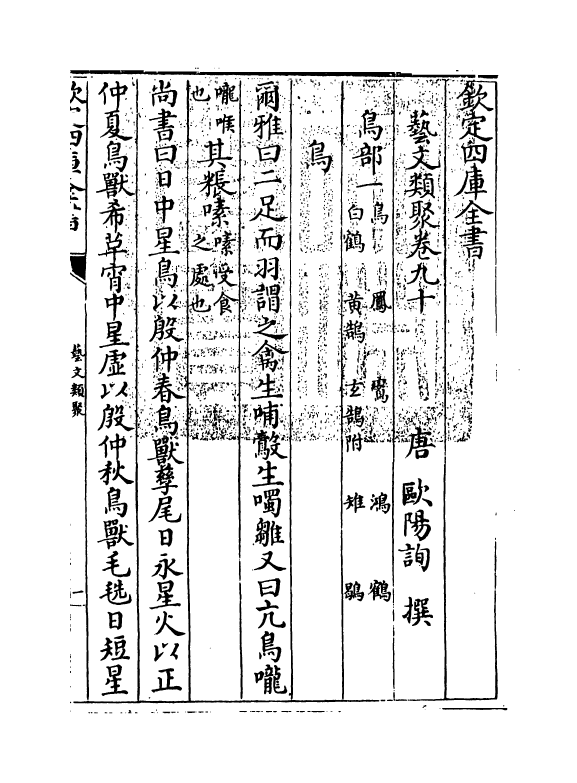 欽定四庫全書
藝文類聚卷九十
唐 歐陽詢 撰
鳥部一 鳥 鳳 鸞 鴻 鶴
白鶴 黃鵠 玄鵠附 雉 鶡
鳥
爾雅曰二足而羽謂之禽生哺鷇生噣雛又曰亢鳥嚨
嚨喉
也
其粻嗉
嗉受食
之處也
尚書曰日中星鳥以殷仲春鳥獸孳尾日永星火以正
仲夏鳥獸希革宵中星虛以殷仲秋鳥獸毛毨日短星
欽定四庫全書
藝文類聚
一